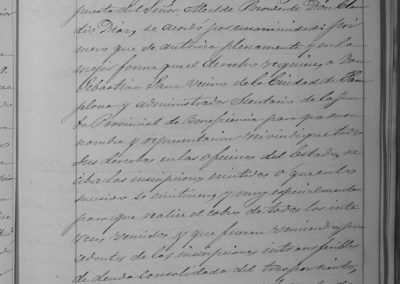 puesta del Señor Alcalde Provisional Don Clau
dio Diaz, se acordó por unanimidad: pri
mero que se autoriza plenamente y en la
mejor forma que el derecho requiere, a Don
Sebastian Sanz vecino de la Ciudad de Pam
plona y administrador Secretario de la Jun
ta Provincial de Beneficencia para que en su
nombre y representacion reivindique todos
sus derechos en las oficinas del Estado, re
ciba las inscripciones emitidas o que en lo
sucesivo se emitieren, y muy especialmente
para que realice el cobro de todos los inte
reses vencidos y que fueren venciendo pro
cedentes de las inscripciones intransferibles
de deuda consolidada del tres por ciento,